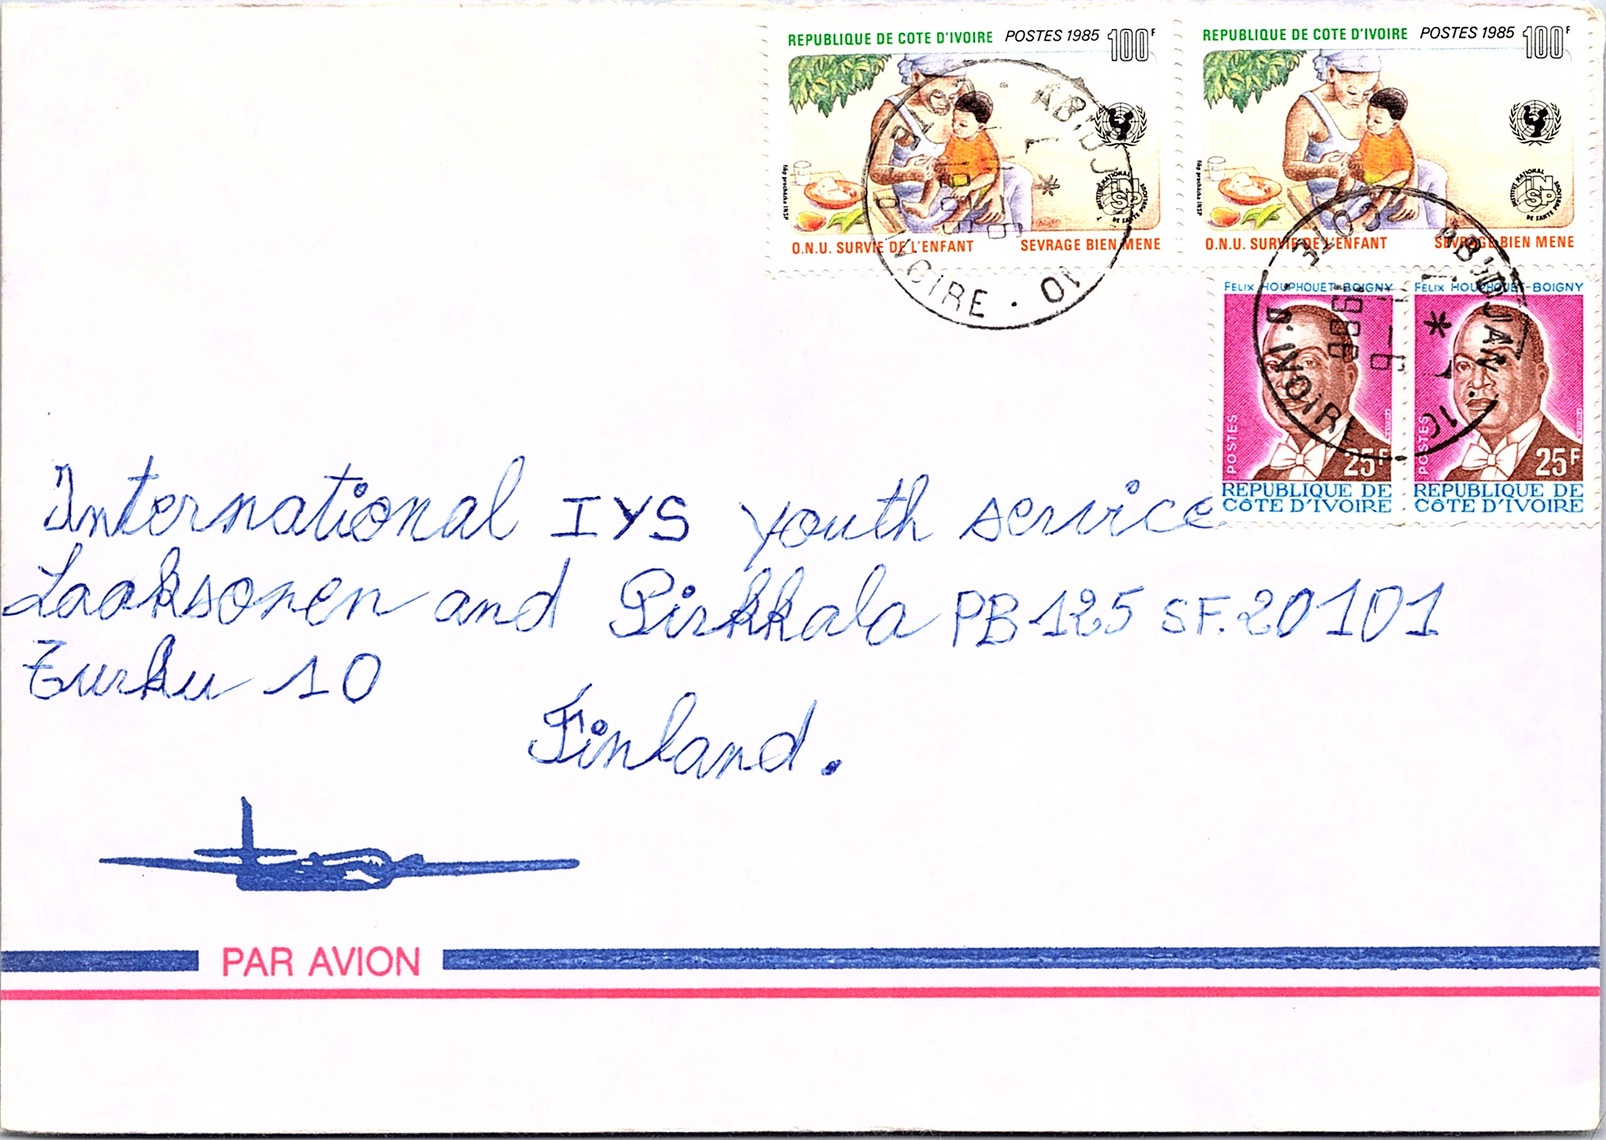 REPUBLIQUE DE COTE D'IVOIRE POSTES 1985 100F
O.N.U. SURVIE DE L'ENFANT SEVRAGE BIEN MENE
REPUBLIQUE DE COTE D'IVOIRE POSTES 1985 100F
INSTITUT NATIONAL DE SANTE PUBLIQUE
INSP
O.N.U. SURVIE DE L'ENFANT SEVRAGE BIEN MENE
ABIDJAN 01
COTE D'IVOIRE
FELIX HOUPHOUET-BOIGNY
POSTES
25F
REPUBLIQUE DE
CÔTE D'IVOIRE
FELIX HOUPHOUET-BOIGNY
POSTES
25F
REPUBLIQUE DE
CÔTE D'IVOIRE
ABIDJAN
COTE D'IVOIRE
1986
International IYS youth service
Laaksonen and Pirkkala PB 125 SF. 20101
Turku 10
Finland.
PAR AVION